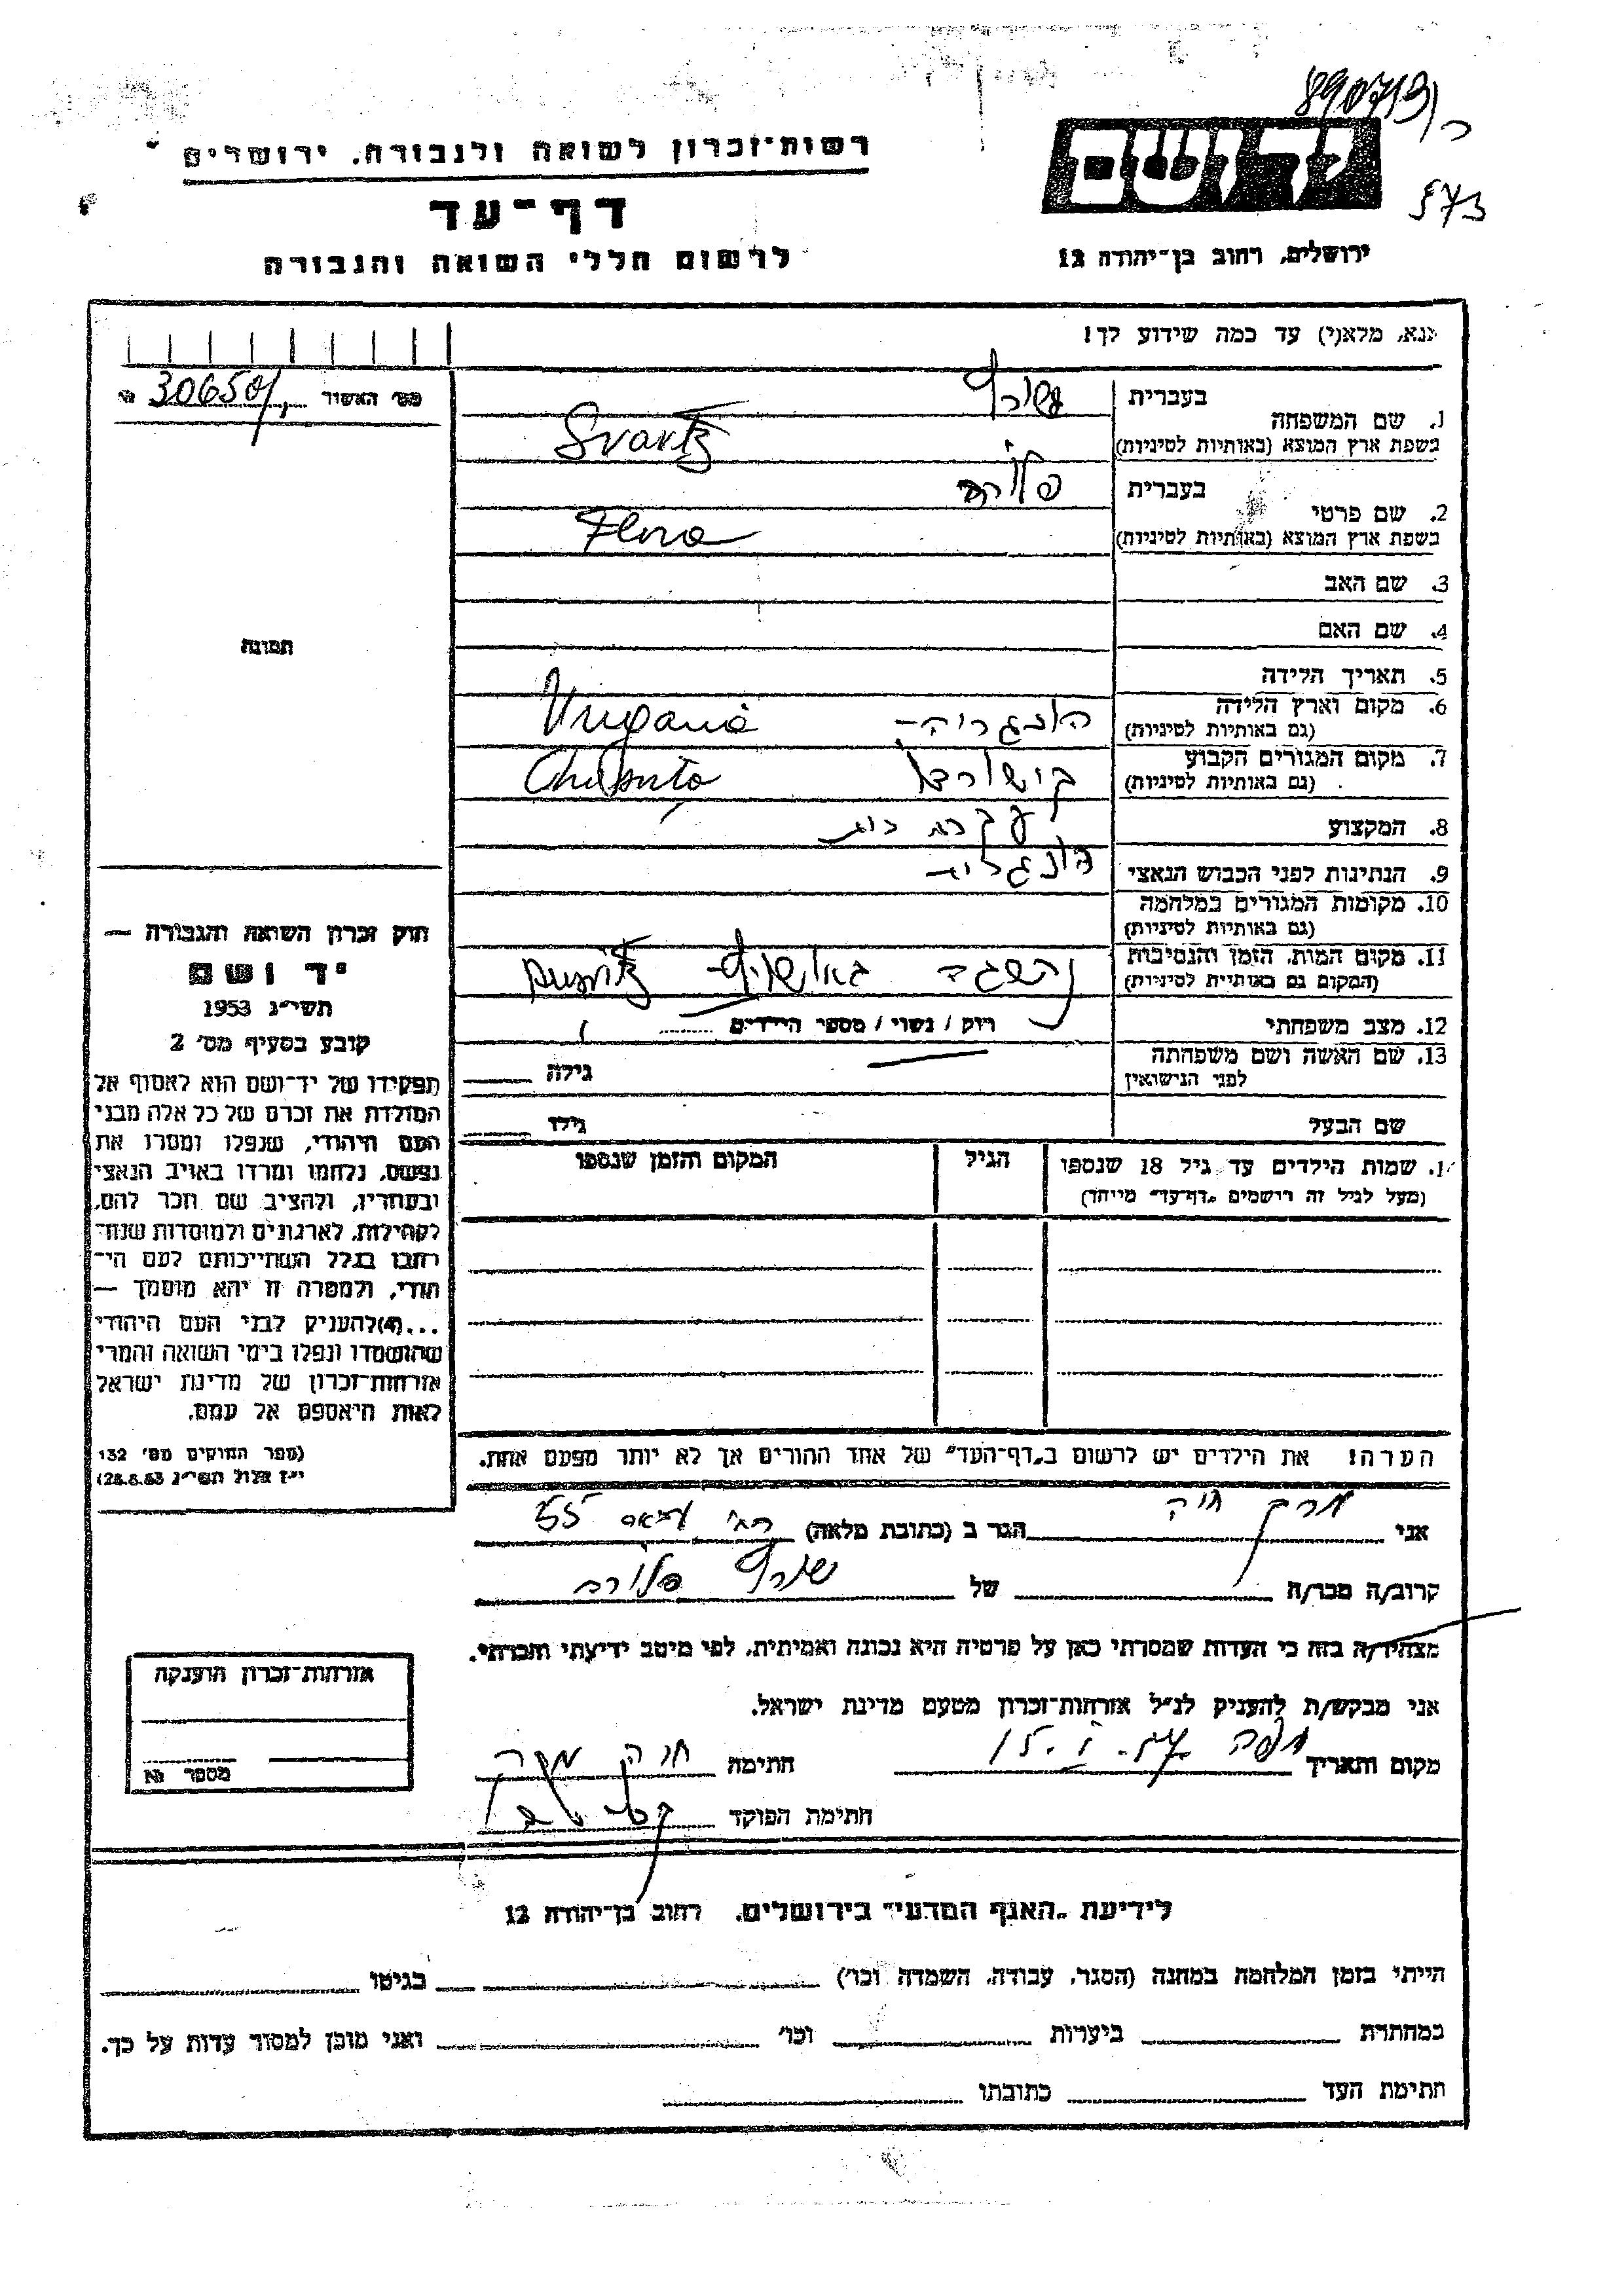 890719
573
יד ושם
רשות־זכרון לשואה ולגבורה, ירושלים
דף־עד
לרשום חללי השואה והגבורה
ירושלים, רחוב בן־יהודה 12
אנא, מלא(י) עד כמה שידוע לך!
מס׳ האשור 30650
1. שם המשפחה
בעברית שורץ
בשפת ארץ המוצא (באותיות לטיניות) Svartz
2. שם פרטי
בעברית פלורה
בשפת ארץ המוצא (באותיות לטיניות) Flora
3. שם האב
4. שם האם
5. תאריך הלידה
6. מקום וארץ הלידה הונגריה
(גם באותיות לטיניות)
7. מקום המגורים הקבוע
(גם באותיות לטיניות)
8. המקצוע עקרת בית
9. הנתינות לפני הכבוש הנאצי
10. מקומות המגורים במלחמה
(גם באותיות לטיניות)
11. מקום המות, הזמן והנסיבות
(המקום גם באותיות לטיניות)
12. מצב משפחתי רווק / נשוי / מספר הילדים
13. שם האשה ושם משפחתה גילה
לפני הנישואין
שם הבעל גילו
שמות הילדים עד גיל 18 שנספו הגיל המקום והזמן שנספו
(מעל לגיל זה רושמים „דף־עד״ מיוחד)
הערה: את הילדים יש לרשום ב„דף־העד״ של אחד ההורים אך לא יותר מפעם אחת.
תמונה
חוק זכרון השואה והגבורה —
יד ושם
תשי״ג 1953
קובע בסעיף מס׳ 2
תפקידו של יד־ושם הוא לאסוף אל
המולדת את זכרם של כל אלה מבני
העם היהודי, שנפלו ומסרו את
נפשם, נלחמו ומרדו באויב הנאצי
ובעוזריו, ולהציב שם וזכר להם,
לקהילות, לארגונים ולמוסדות שנח־
רבו בגלל השתייכותם לעם הי־
הודי, ולמטרה זו יהא מוסמך —
...(4) להעניק לבני העם היהודי
שהושמדו ונפלו בימי השואה והמרי
אזרחות־זכרון של מדינת ישראל
לאות היאספם אל עמם.
(ספר החוקים מס׳ 132
י״ז אלול תשי״ג 28.8.53)
אני חיה הגר ב (כתובת מלאה)
קרוב/ה מכר/ה של שורץ פלורה
מצהיר/ה בזה כי העדות שמסרתי כאן על פרטיה היא נכונה ואמיתית, לפי מיטב ידיעתי והכרתי.
אני מבקש/ת להעניק לנ״ל אזרחות־זכרון מטעם מדינת ישראל.
מקום ותאריך חיפה חתימה חיה
חתימת הפוקד
אזרחות־זכרון הוענקה
מספר №
לידיעת „האגף המדעי״ בירושלים, רחוב בן־יהודה 12
הייתי בזמן המלחמה במחנה (הסגר, עבודה, השמדה וכו׳) בגיטו
במחתרת ביערות וכו׳ ואני מוכן למסור עדות על כך.
חתימת העד כתובתו